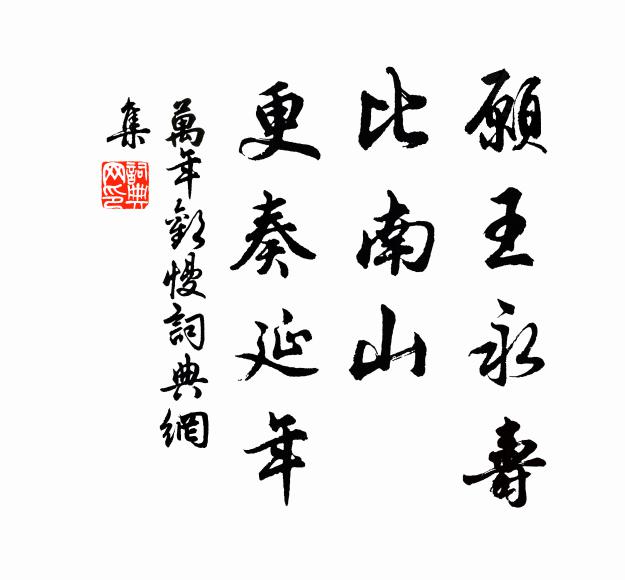 願王永壽
比南山
更奏延年
萬年歡慢詞典網
集
詞典網印